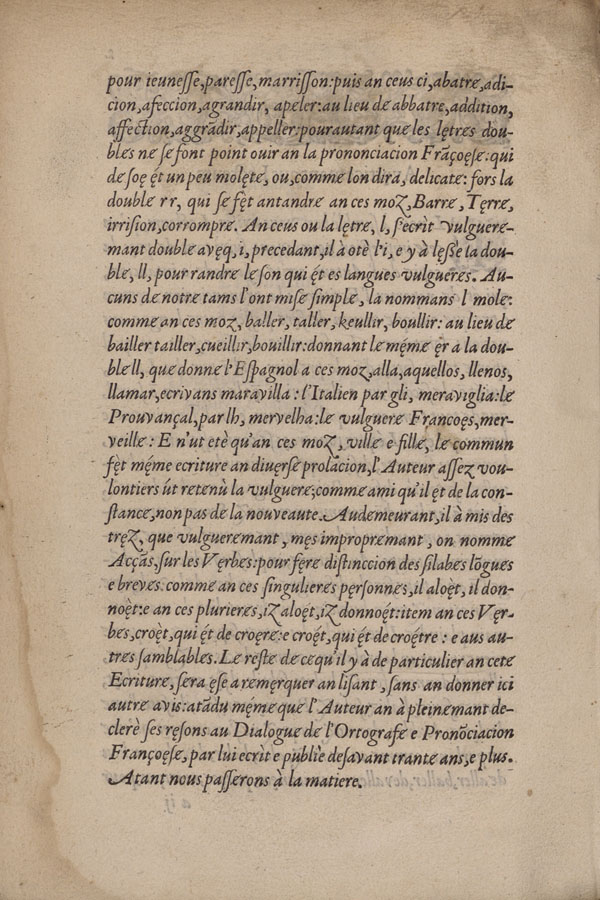 pour ieuneſſe,pareſſe,marriſſon:puis an ceus ci,abatre,adi-
cion,afeccion,agrandir, apeler:au lieu de abbatre,addition,
affection,aggrãdir,appeller:pourautant que les lętres dou-
bles ne ſe font point ouir an la prononciacion Frãçoęſe:qui
de ſoę ę́t un peu molęte, ou,comme lon dira, delicate: fors la
double rr, qui ſe fęt antandre an ces moz,Barre, Tęrre,
irriſion,corrompre. An ceus ou la lętre, l, ſ'ecrìt vulguere-
mant double avęq, i, precedant,il à otè l'i, e y à lęßè la dou-
ble, ll, pour randre le ſon qui ę́t es langues vulgueres. Au-
cuns de notre tams l'ont miſe ſimple, la nommans l mole:
comme an ces moz, baller, taller, keullir, boullir: au lieu de
bailler tailler,cueillir,bouillir:donnant le mę́me ęr a la dou-
ble ll, que donne l'Eſpagnol a ces moz,alla,aquellos, llenos,
llamar,ecrivans maravilla : l'Italien par gli, meraviglia:le
Prouvançal,par lh, mervelha:le vulguere Francoęs,mer-
veille : E n'ut etè qu'an ces moz, ville e fille, le commun
fęt mę́me ecriture an diuęrſe prolacion,l'Auteur aſſez vou-
lontiers út retenù la vulguere;comme ami qu'il ę́t de la con-
ſtance,non pas de la nouveaute. Audemeurant,il à mis des
tręz, que vulgueremant, męs impropremant, on nomme
Acçãs,ſur les Vęrbes:pour fęre diſtinccion des ſilabes lõgues
e breves: comme an ces ſingulieres pęrſonnes,il aloęt, il don-
noęt:e an ces plurieres,iz aloę́t,iz donnoę́t:item an ces Vęr-
bes,croęt,qui ę́t de croęre:e croę́t,qui ę́t de croętre : e aus au-
tres ſamblables. Le reſte de cequ'il y à de particulier an cete
Ecriture,ſera ęſe a remęrquer an liſant, ſans an donner ici
autre avis:atãdu męme que l'Auteur an à pleinemant de-
clerè ſes ręſons au Dialogue de l'Ortografe e Pronõciacion
Françoęſe, par lui ecrìt e publiè deſavant trante ans,e plus.
Atant nous paſſerons à la matiere.